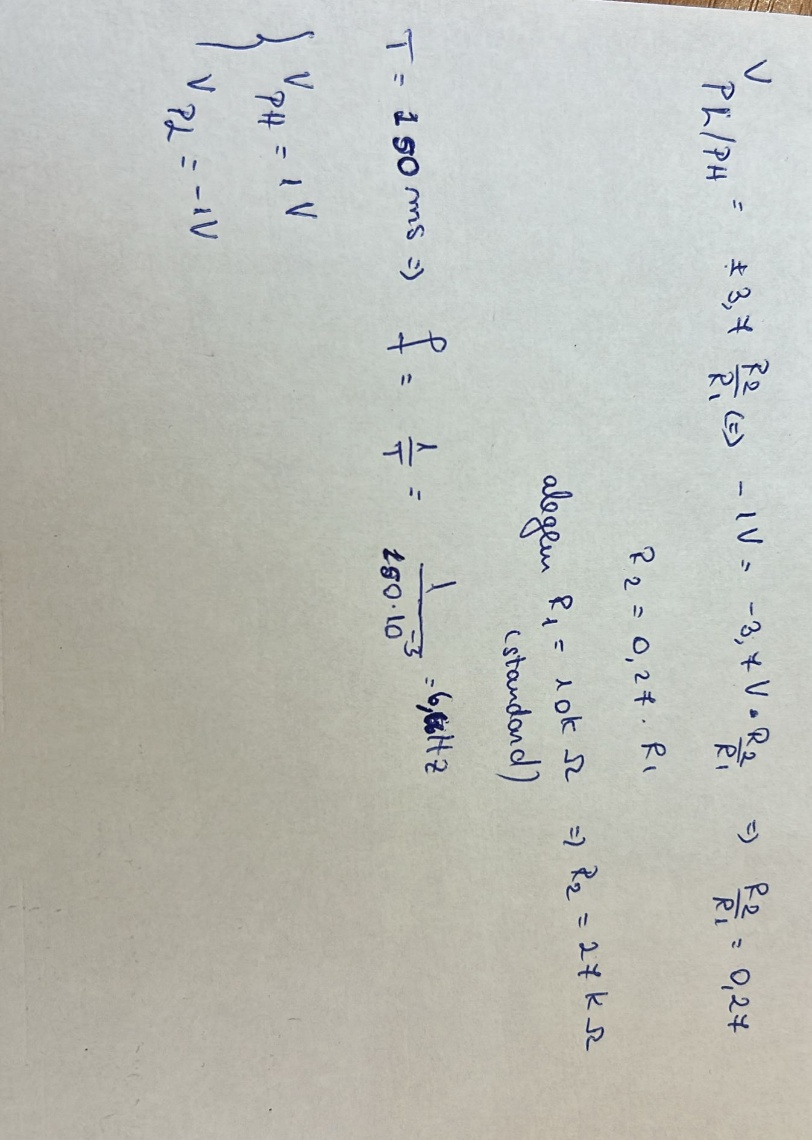 V PL/PH = ± 3,7 R2/R1 (=) -1V = -3,7V · R2/R1 => R2/R1 = 0,27
R2 = 0,27 · R1
alegem R1 = 10kΩ => R2 = 27kΩ
(standard)
T = 150 ms => f = 1/T = 1/150·10⁻³ = 6,6Hz
{ VPH = 1V
VPL = -1V